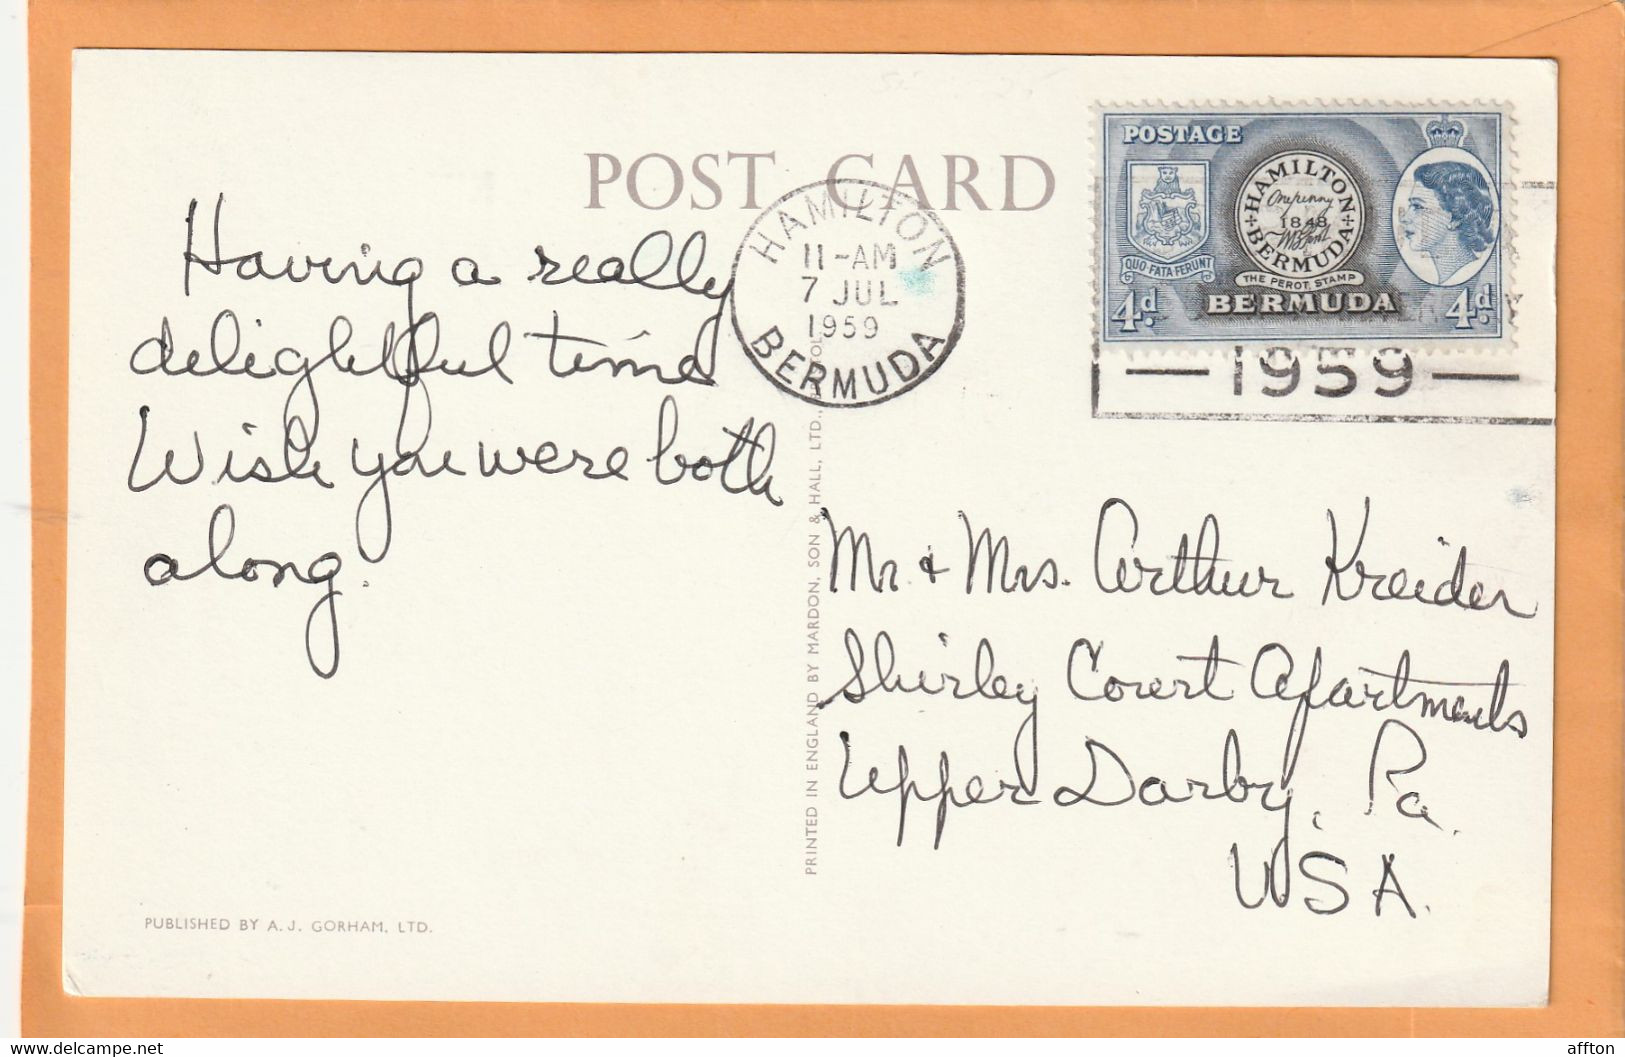 POST CARD
Having a really
delightful time
Wish you were both
along.
HAMILTON
11-AM
7 JUL
1959
BERMUDA
POSTAGE
HAMILTON
One penny
1848
BERMUDA
THE PEROT STAMP
QUO FATA FERUNT
4d. BERMUDA 4d.
— 1959 —
Mr. & Mrs. Arthur Kreider
Shirley Court Apartments
Upper Darby, Pa.
USA.
PRINTED IN ENGLAND BY MARDON, SON & HALL, LTD.,
PUBLISHED BY A. J. GORHAM, LTD.
www.delcampe.net
affton